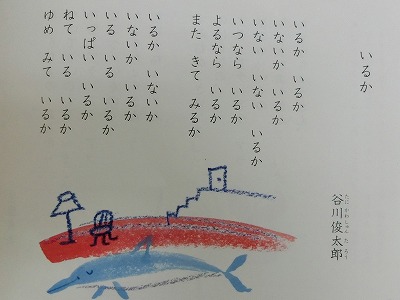 いるか
谷川俊太郎
たにかわしゅんたろう
いるか いるか
いないか いるか
いない いない いるか
いつなら いるか
よるなら いるか
また きて みるか
いるか いないか
いないか いるか
いる いる いるか
いっぱい いるか
ねて いる いるか
ゆめ みて いるか